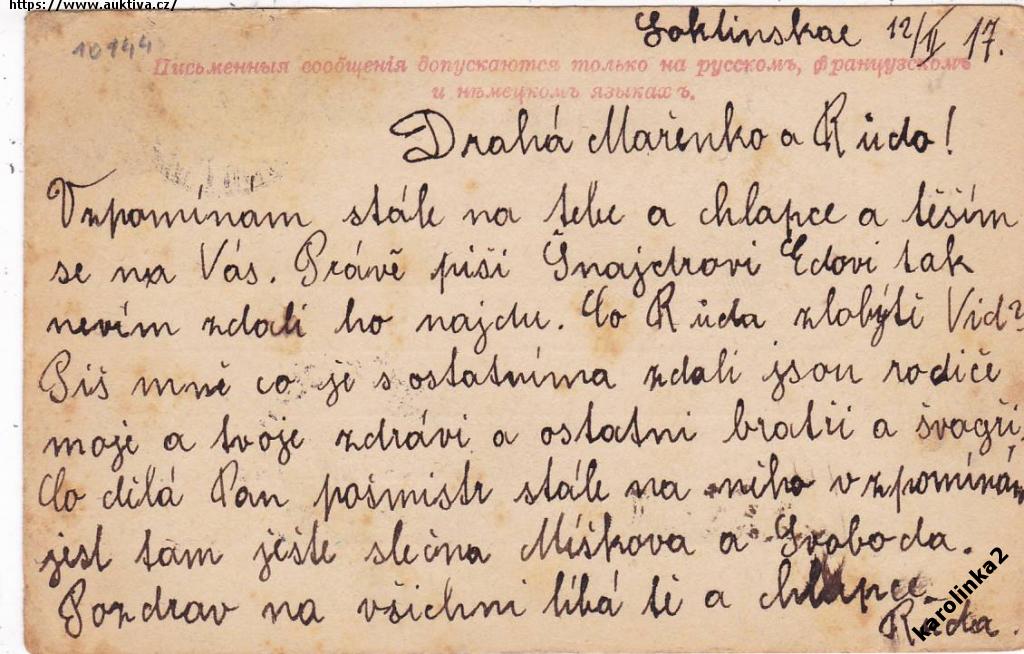 https://www.auktiva.cz/
10144
Soklinskae 12/II 17.
Письменныя сообщенія допускаются только на русскомъ, французскомъ
и нѣмецкомъ языкахъ.
Drahá Mařenko a Růdo!
Vzpomínám stále na tebe a chlapce a těším
se na Vás. Právě piši Šnajdrovi Edovi tak
nevím zdali ho najdu. Co Růda zlobýti Vid?
Piš mně co je s ostatníma zdali jsou rodiče
moje a tvoje zdrávi a ostatni bratři a švagři.
Co dilá Pan pošmistr stále na niho vzpomínám
jest tam ješte slečna Míškova a Svoboda.
Pozdrav na všichni líbá tě a chlapce.
Růda.
karolinka2